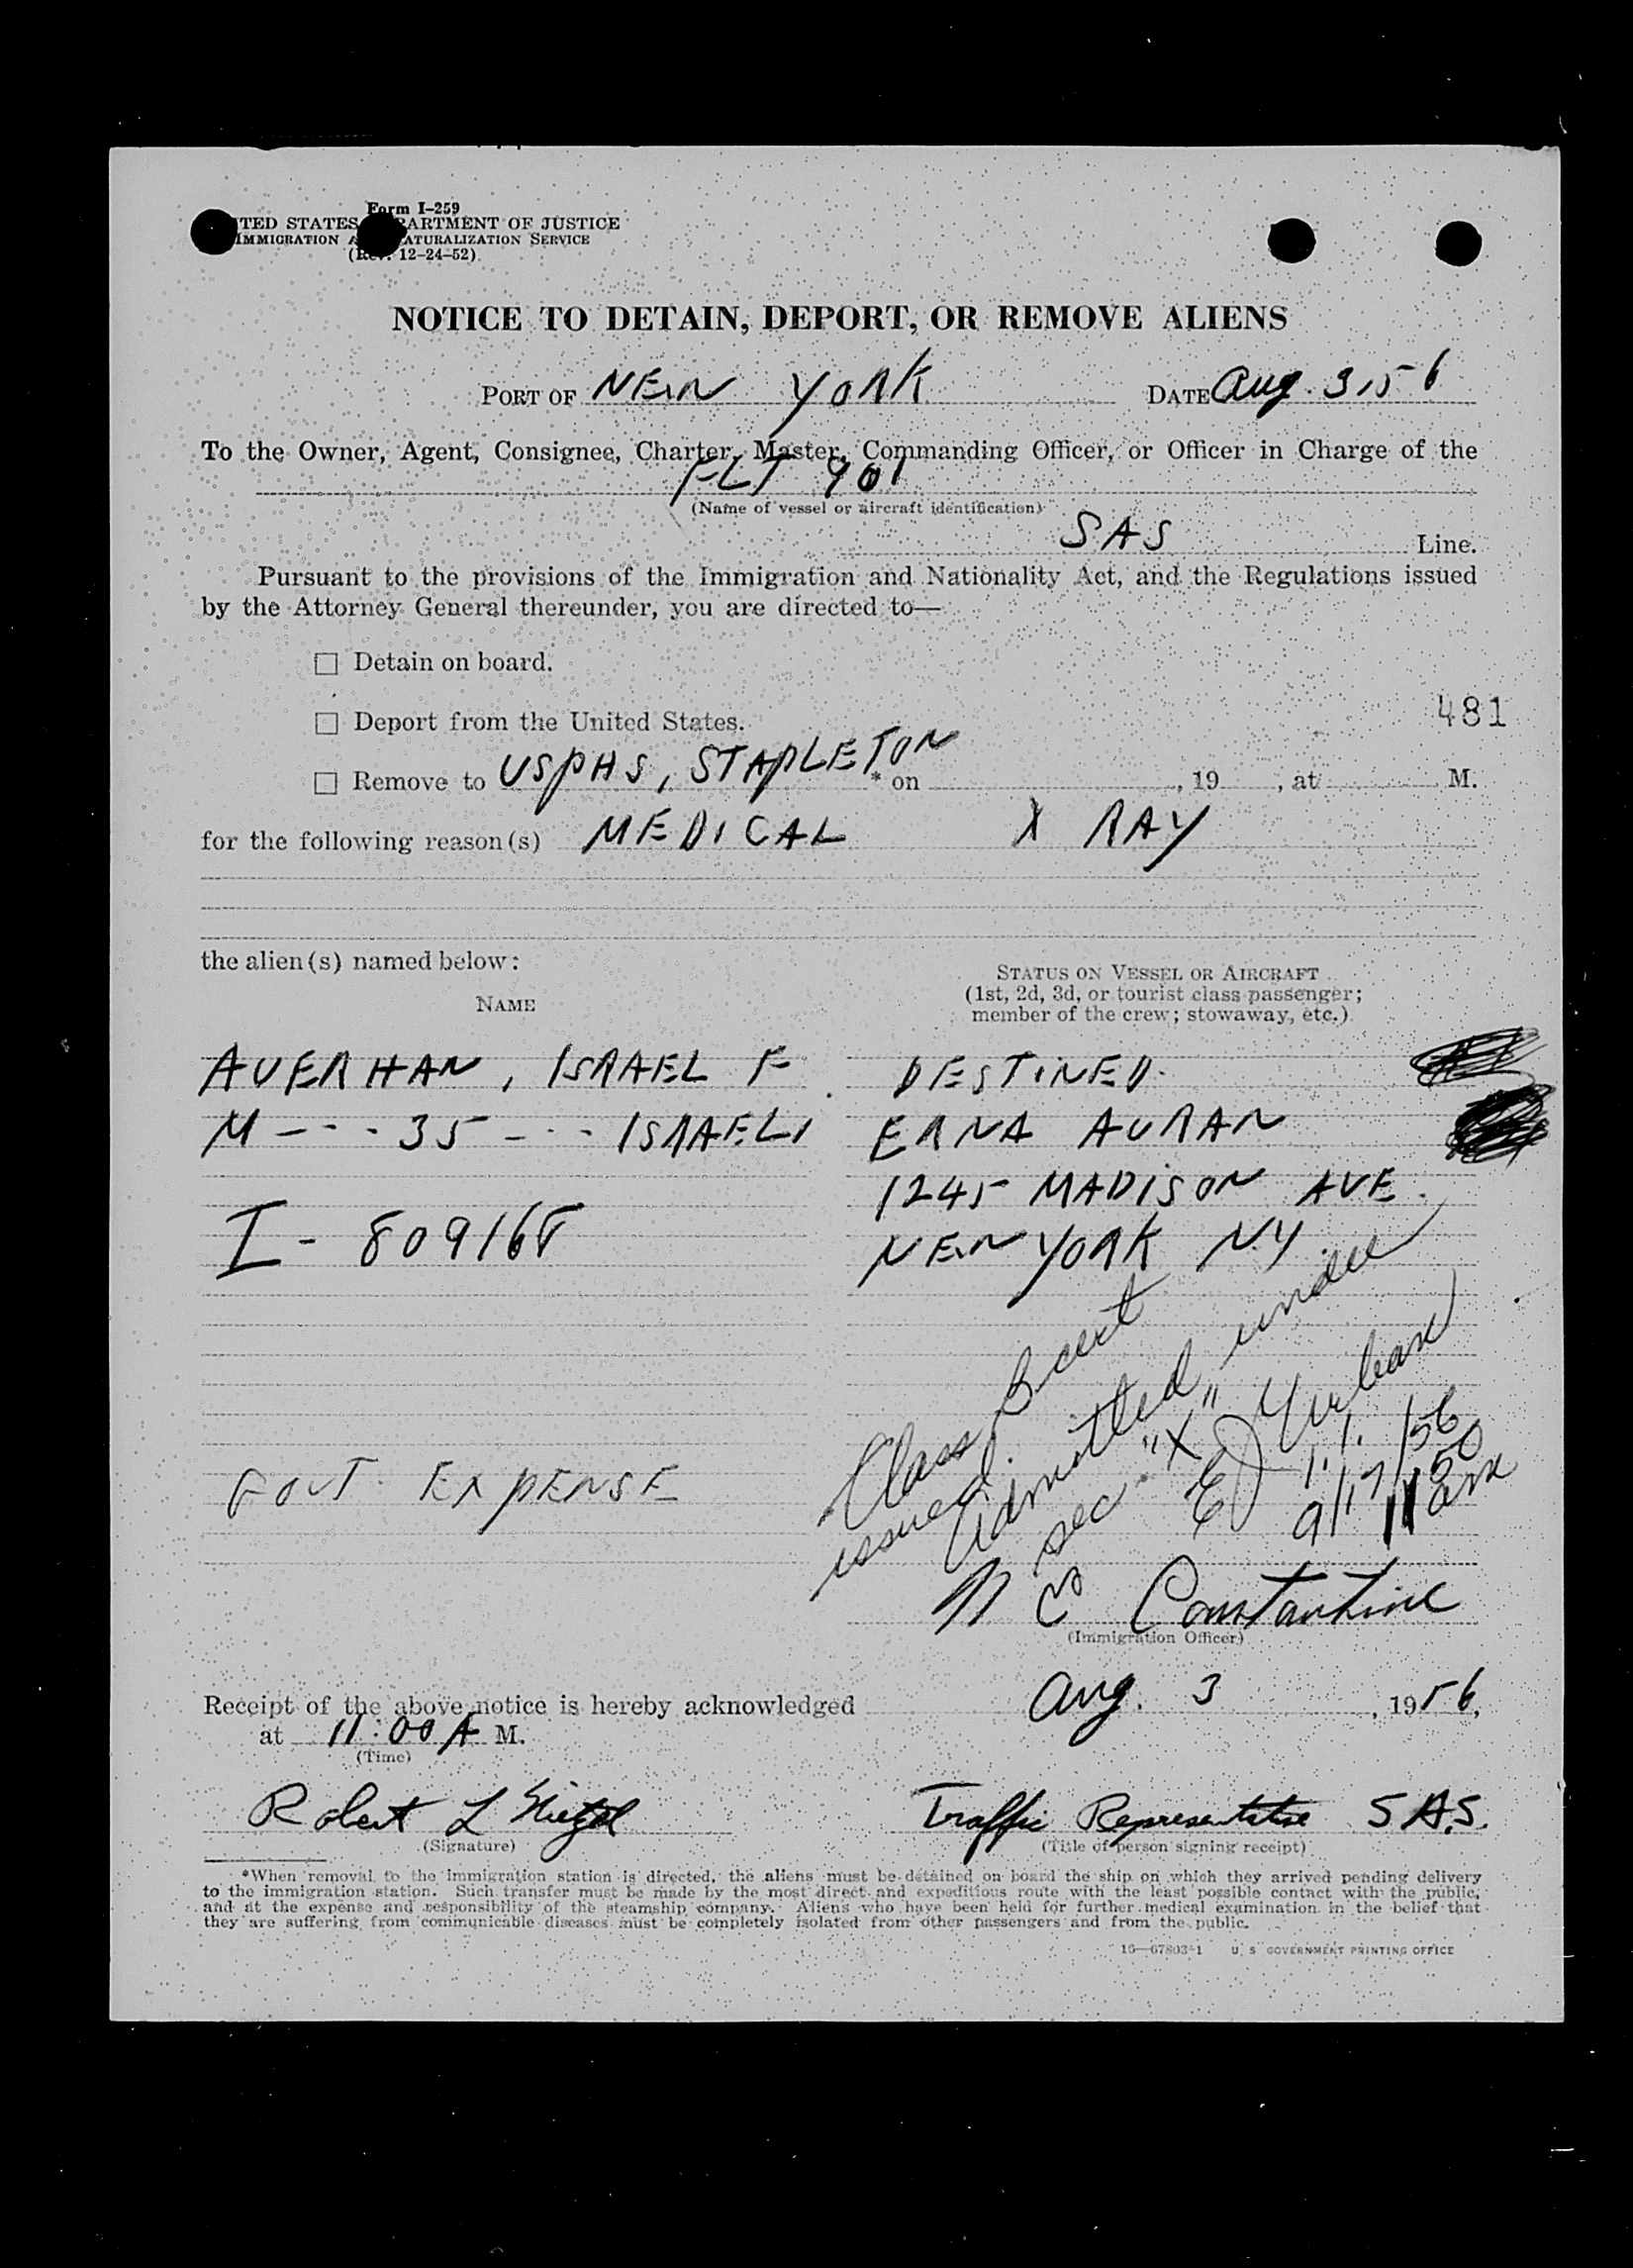 Form I-259
TED STATES PARTMENT OF JUSTICE
IMMIGRATION A ATURALIZATION SERVICE
(Rev. 12-24-52)
NOTICE TO DETAIN, DEPORT, OR REMOVE ALIENS
PORT OF NEW YORK DATE Aug. 3, 56
To the Owner, Agent, Consignee, Charter, Master, Commanding Officer, or Officer in Charge of the
FLT 901
(Name of vessel or aircraft identification)
SAS Line.
Pursuant to the provisions of the Immigration and Nationality Act, and the Regulations issued
by the Attorney General thereunder, you are directed to—
☐ Detain on board.
☐ Deport from the United States.
481
☐ Remove to USPHS, STAPLETON * on , 19 , at M.
for the following reason(s) MEDICAL X RAY
the alien(s) named below:
NAME
STATUS ON VESSEL OR AIRCRAFT
(1st, 2d, 3d, or tourist class passenger;
member of the crew; stowaway, etc.)
AVERHAN, ISRAEL F
M - - - 35 - - - ISRAELI
I - 809168
GOVT. EXPENSE
DESTINED.
ERNA AURAN
1245 MADISON AVE.
NEW YORK NY.
Class B cert
issued.
Admitted under
sec "X"
Constantine
(Immigration Officer)
Receipt of the above notice is hereby acknowledged Aug. 3, 1956,
at 11:00 A M.
(Time)
Robert L
(Signature)
Traffic Representative S.A.S.
(Title of person signing receipt)
*When removal to the immigration station is directed, the aliens must be detained on board the ship on which they arrived pending delivery
to the immigration station. Such transfer must be made by the most direct and expeditious route with the least possible contact with the public,
and at the expense and responsibility of the steamship company. Aliens who have been held for further medical examination in the belief that
they are suffering from communicable diseases must be completely isolated from other passengers and from the public.
16—67803-1 U. S. GOVERNMENT PRINTING OFFICE